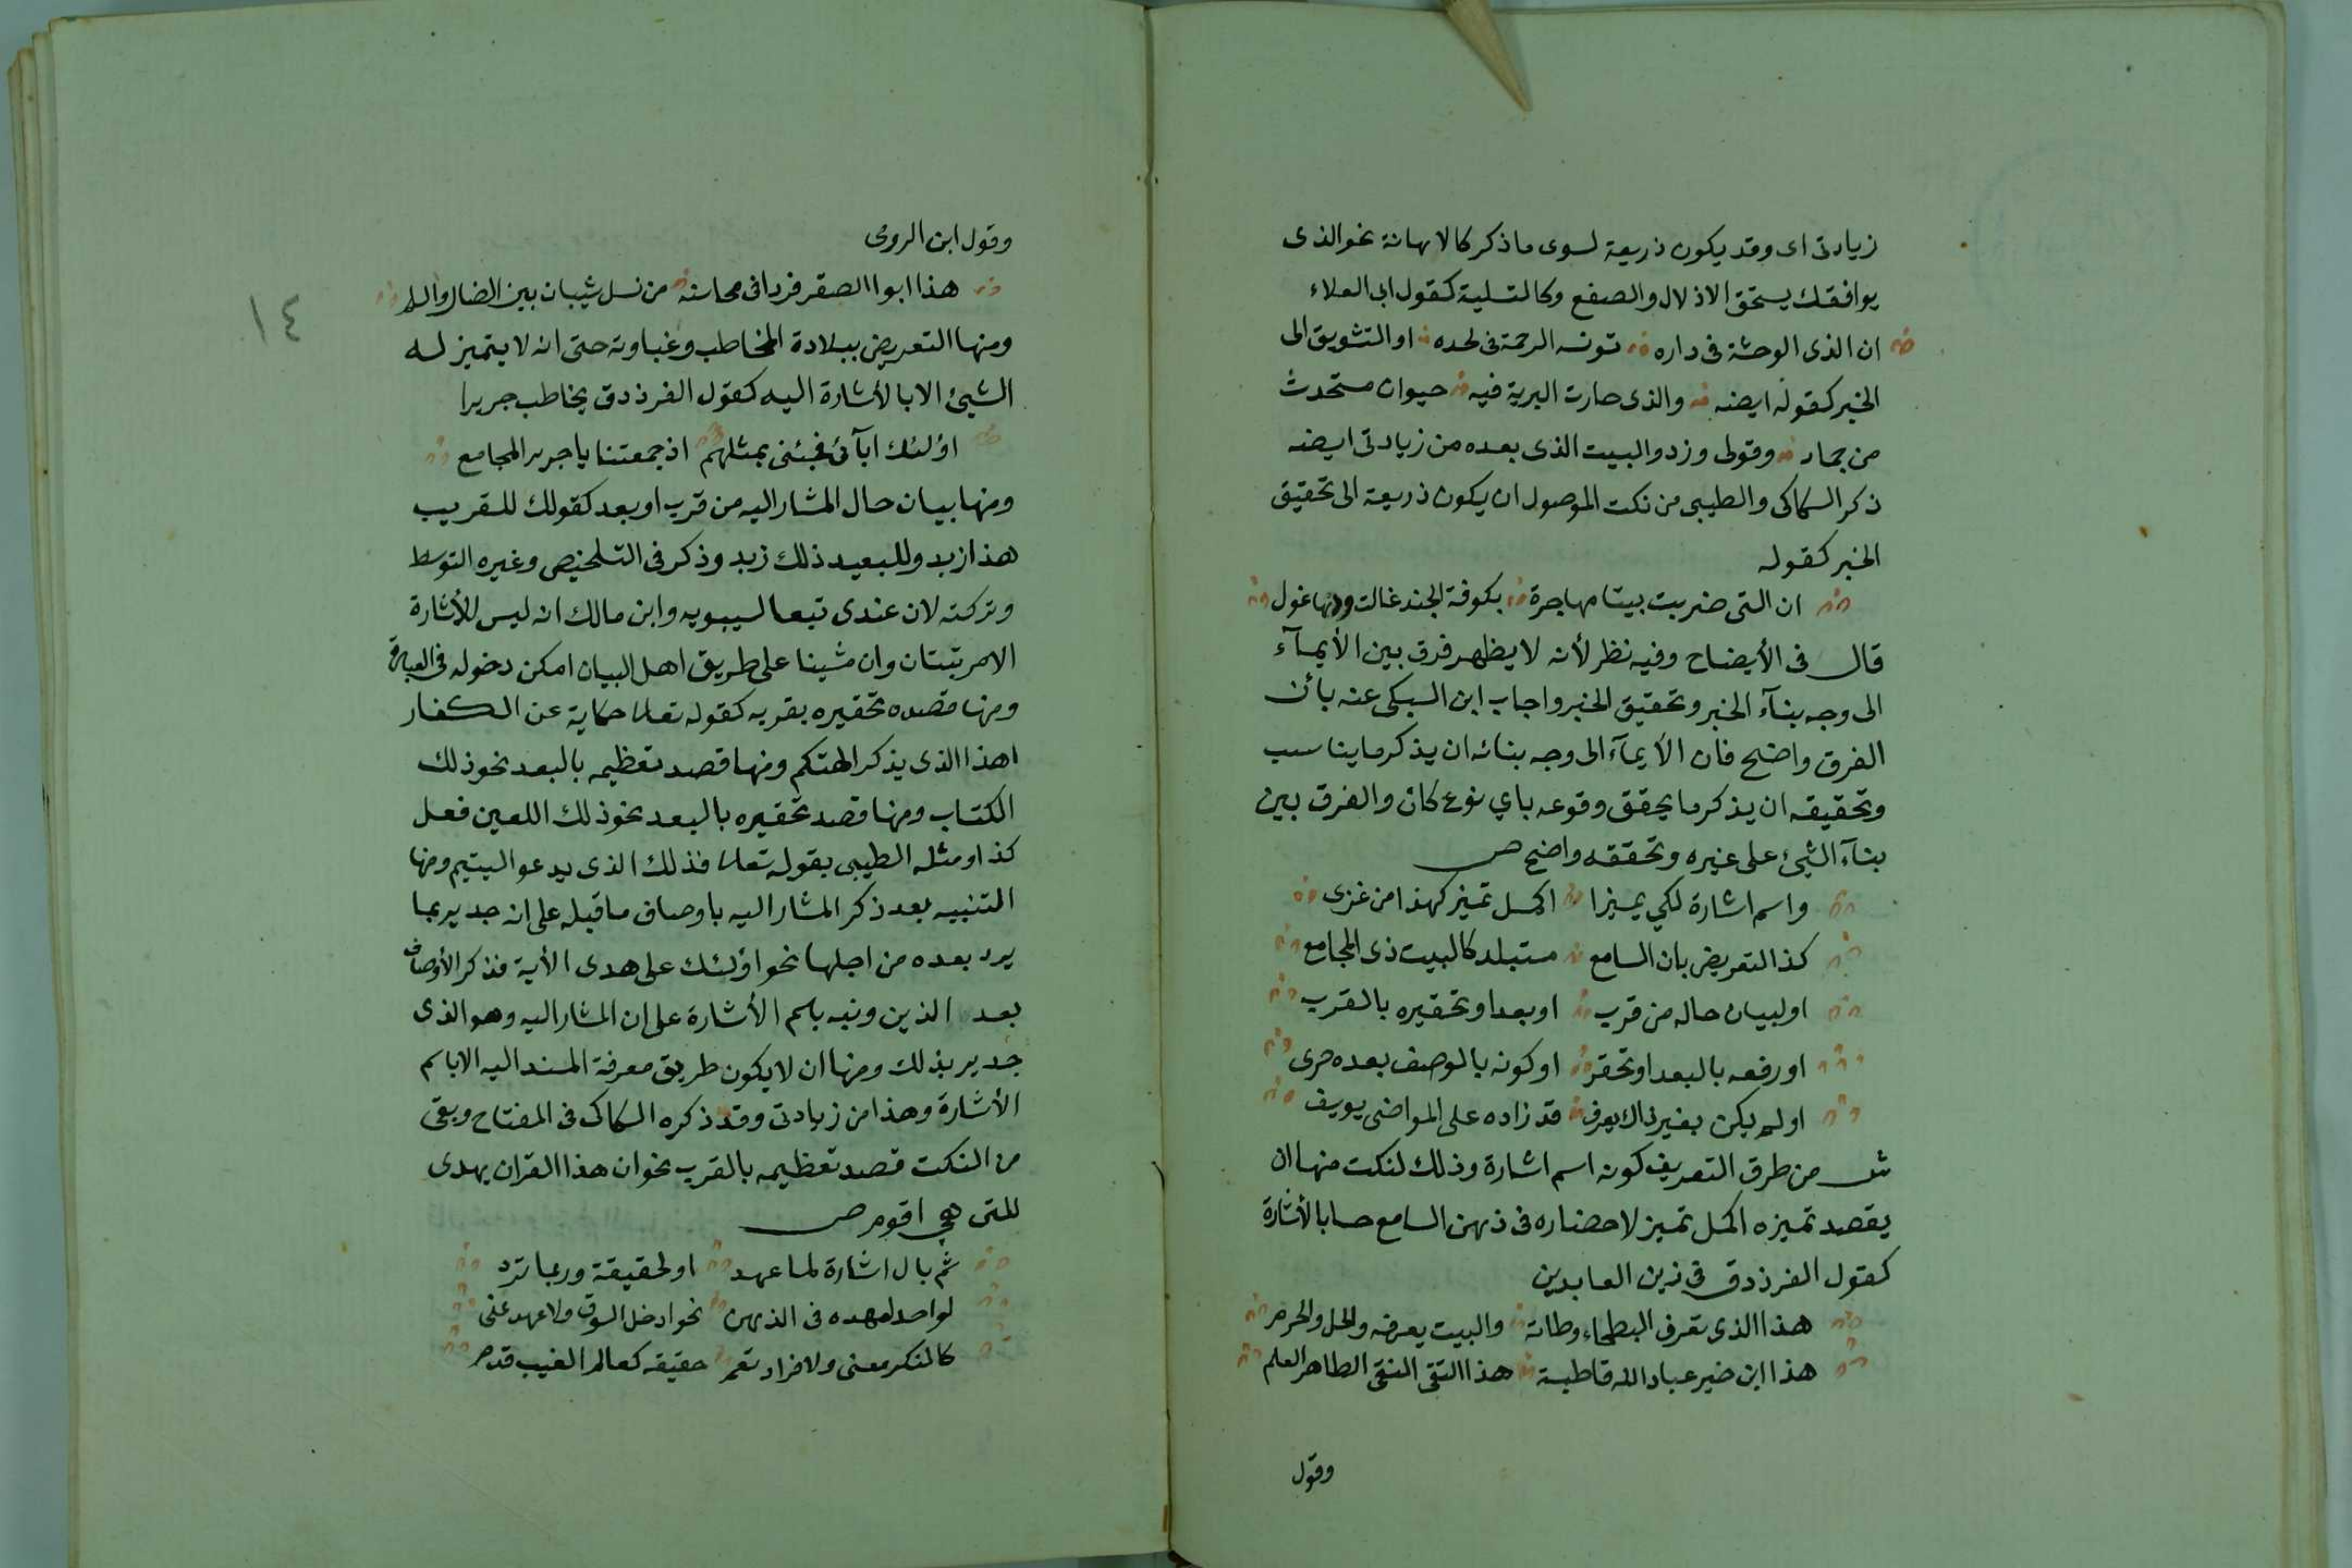 زيادتى اى وقد يكون ذريعة لسوى ما ذكر كالاهانة نحو الذى
يوافقك يستحق الاذلال والصفع وكالتسلية كقول ابى العلاء
ان الذى الوحشة فى داره تونسه الرحمة فى لحده او التشويق الى
الخبر كقوله ايضه والذى حارت البرية فيه حيوان مستحدث
من جماد وقولى وزد والبيت الذى بعده من زيادتى ايضه
ذكر السكاكى والطيبى من نكت الموصول ان يكون ذريعة الى تحقيق
الخبر كقوله
ان التى ضربت بيتا مهاجرة بكوفة الجند غالت ودها غول
قال فى الأيضاح وفيه نظر لأنه لا يظهر فرق بين الأيمآء
الى وجه بنآء الخبر وتحقيق الخبر واجاب ابن السبكى عنه بأن
الفرق واضح فان الأيمآء الى وجه بنائه ان يذكر ما يناسب
وتحقيقه ان يذكر ما يحقق وقوعه باي نوع كان والفرق بين
بنآء الشيئ على غيره وتحققه واضح ص
واسم اشارة لكي يميزا اكمل تميز كهذا من غزى
كذا التعريض بان السامع مستبلد كالبيت ذى المجامع
او لبيان حاله من قرب او بعد او تحقيره بالقرب
او رفعه بالبعد او تحقر او كونه بالوصف بعده حرى
او لم يكن بغير ذاك يعرف قد زاده على المواضى يوسف
ش من طرق التعريف كونه اسم اشارة وذلك لنكت منها ان
يقصد تميزه اكمل تميز لاحضاره فى ذهن السامع حسا بالأشارة
كقول الفرزدق فى زين العابدين
هذا الذى تعرف البطحاء وطاته والبيت يعرفه والحل والحرم
هذا ابن خير عباد الله قاطبة هذا التقى النقى الطاهر العلم
وقول
١٤
وقول ابن الرومى
هذا ابوا الصقر فردا فى محاسنه من نسل شيبان بين الضال والسلم
ومنها التعريض ببلادة المخاطب وغباوته حتى انه لا يتميز له
الشيئ الا بالأشارة اليه كقول الفرزدق يخاطب جريرا
اؤلئك ابآئى فجئنى بمثلهم اذ جمعتنا يا جرير المجامع
ومنها بيان حال المشار اليه من قرب او بعد كقولك للقريب
هذا زيد وللبعيد ذلك زيد وذكر فى التلخيص وغيره التوسط
وتركته لان عندى تبعا لسيبويه وابن مالك انه ليس للأشارة
الا مرتبتان وان مشينا على طريق اهل البيان امكن دخوله فى العبارة
ومنها قصده تحقيره بقربه كقوله تعالى حكاية عن الكفار
اهذا الذى يذكر الهتكم ومنها قصد تعظيمه بالبعد نحو ذلك
الكتاب ومنها قصد تحقيره بالبعد نحو ذلك اللعين فعل
كذا ومثله الطيبى بقوله تعالى فذلك الذى يدعو اليتيم ومنها
التنبيه بعد ذكر المشار اليه باوصاف ما قبله على انه جدير بما
يرد بعده من اجلها نحو اؤلئك على هدى الأية فذكر الأوصاف
بعد الذين ونبه باسم الأشارة على ان المشار اليه وهو الذى
جدير بذلك ومنها ان لا يكون طريق معرفة المسند اليه الا باسم
الأشارة وهذا من زيادتى وقد ذكره السكاكى فى المفتاح وبقى
من النكت قصد تعظيمه بالقرب نحو ان هذا القران يهدى
للتى هي اقوم ص
ثم بال اشارة لما عهد او لحقيقة وربما ترد
لواحد لعهده فى الذهن نحو ادخل السوق ولا عهد عنى
كالنكر معنى ولا فراد تعم حقيقه كعالم الغيب قدم